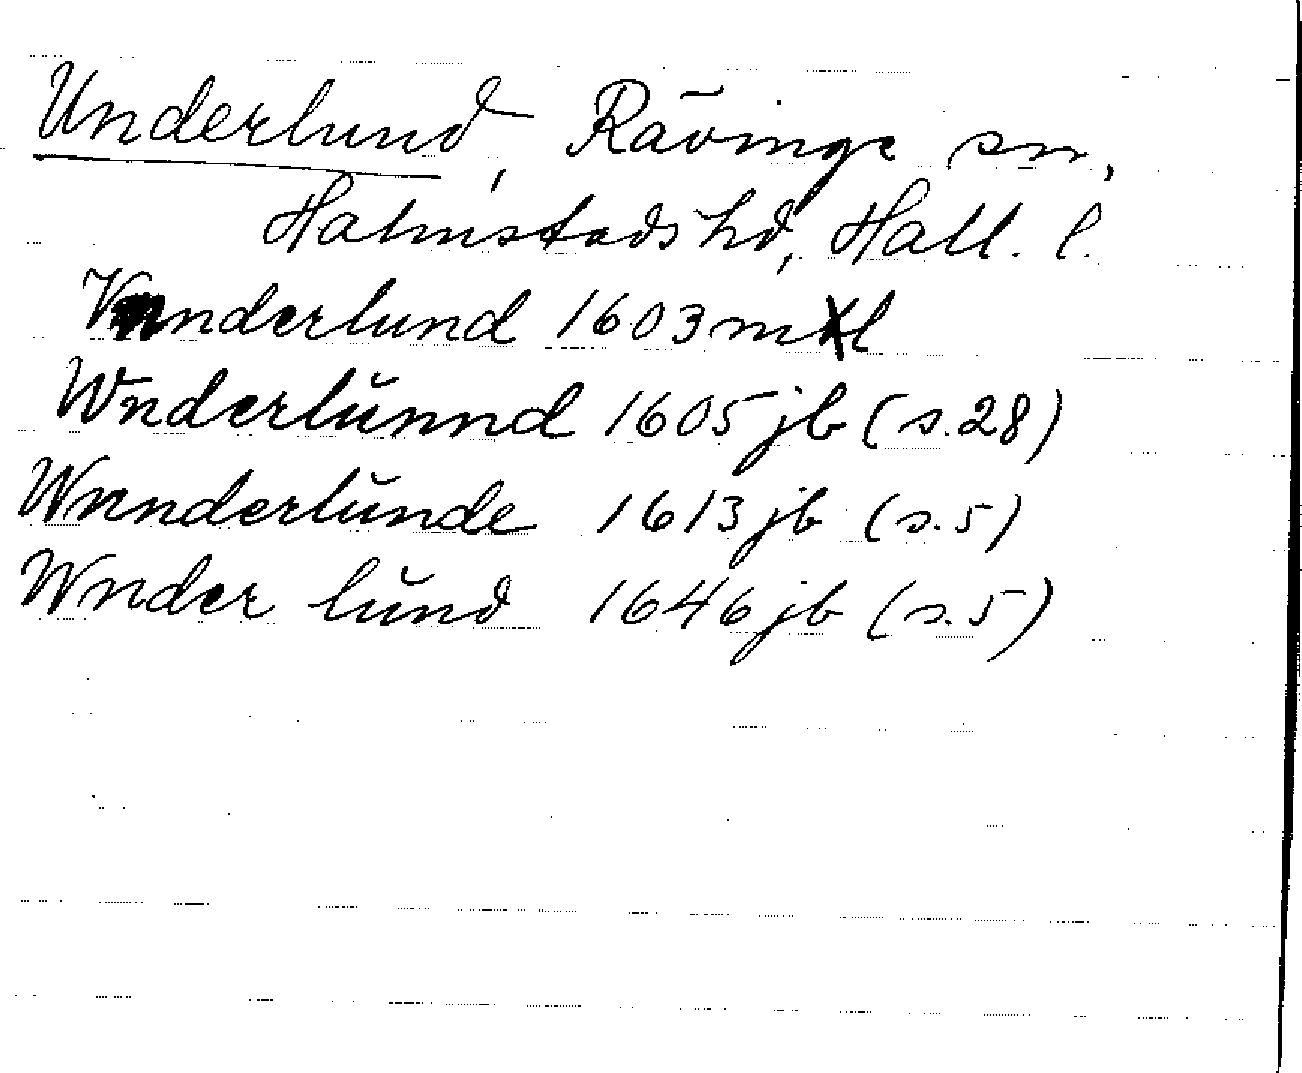 Underlund, Rävinge sn,
Halmstads hd, Hall. l.
Vnderlund 1603 ml
Wnderlŭnnd 1605 jb (s. 28)
Wnnderlŭnde 1613 jb (s. 5)
Wnder lŭnd 1646 jb (s. 5)